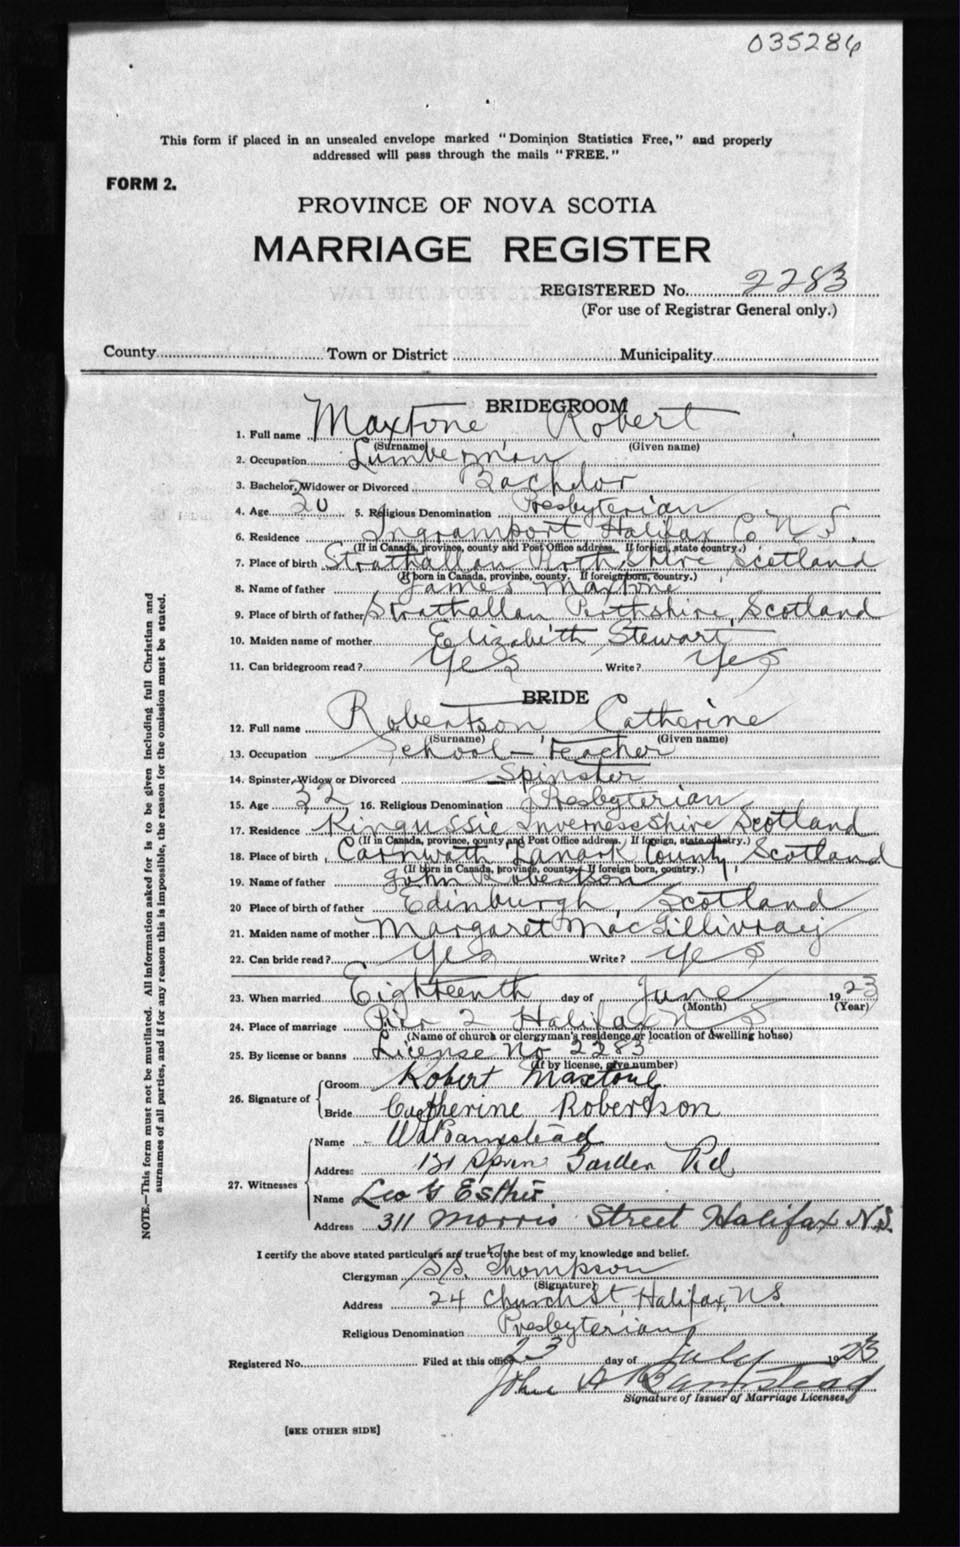 035286
This form if placed in an unsealed envelope marked "Dominion Statistics Free," and properly
addressed will pass through the mails "FREE."
FORM 2.
PROVINCE OF NOVA SCOTIA
MARRIAGE REGISTER
REGISTERED No. 2283
(For use of Registrar General only.)
County Town or District Municipality
BRIDEGROOM
1. Full name Maxtone Robert
(Surname) (Given name)
2. Occupation Lumberman
3. Bachelor, Widower or Divorced Bachelor
4. Age 30 5. Religious Denomination Presbyterian
6. Residence Ingramport Halifax Co N.S.
(If in Canada, province, county and Post Office address. If foreign, state country.)
7. Place of birth Strathallan Perthshire Scotland
(If born in Canada, province, county. If foreign born, country.)
8. Name of father James Maxtone
9. Place of birth of father Strathallan Perthshire, Scotland
10. Maiden name of mother Elizabeth Stewart
11. Can bridegroom read? Yes Write? Yes
BRIDE
12. Full name Robertson Catherine
(Surname) (Given name)
13. Occupation School-Teacher
14. Spinster, Widow or Divorced Spinster
15. Age 32 16. Religious Denomination Presbyterian
17. Residence Kingussie Invernessshire Scotland
(If in Canada, province, county and Post Office address. If foreign, state country.)
18. Place of birth Carnwath Lanark County, Scotland
(If born in Canada, province, county. If foreign born, country.)
19. Name of father John Robertson
20 Place of birth of father Edinburgh, Scotland
21. Maiden name of mother Margaret MacGillivray
22. Can bride read? Yes Write? Yes
23. When married Eighteenth day of June 1923
(Month) (Year)
24. Place of marriage Pier 2 Halifax N S
(Name of church or clergyman's residence or location of dwelling house)
25. By license or banns License No 2283
(If by license, give number)
26. Signature of
Groom Robert Maxtone
Bride Catherine Robertson
27. Witnesses
Name Bamstead
Address 131 Garden Rd
Name Leo G Esther
Address 311 Morris Street Halifax N.S.
I certify the above stated particulars are true to the best of my knowledge and belief.
Clergyman Thompson
(Signature)
Address 24 Church St, Halifax, N.S.
Religious Denomination Presbyterian
Registered No. Filed at this office 23 day of July 1923
John A Bamstead
Signature of Issuer of Marriage Licenses.
[SEE OTHER SIDE]
NOTE.—This form must not be mutilated. All information asked for is to be given including full Christian and
surnames of all parties, and if for any reason this is impossible, the reason for the omission must be stated.